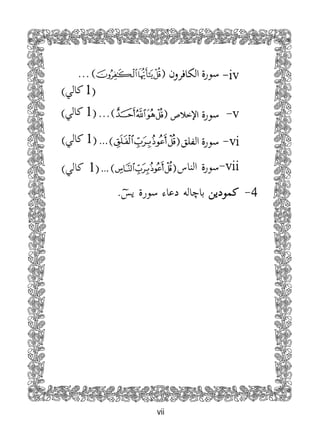 iv- سورة الكافرون (قُلْ يَٰٓأَيُّهَا ٱلْكَٰفِرُونَ) ...
(1 كالي)
v- سورة الإخلاص (قُلْ هُوَ ٱللَّهُ أَحَدٌ) ... (1 كالي)
vi- سورة الفلق (قُلْ أَعُوذُ بِرَبِّ ٱلْفَلَقِ) ... (1 كالي)
vii- سورة الناس (قُلْ أَعُوذُ بِرَبِّ ٱلنَّاسِ) ... (1 كالي)
4- كمودين باچاله دعاء سورة يسٓ.
vii